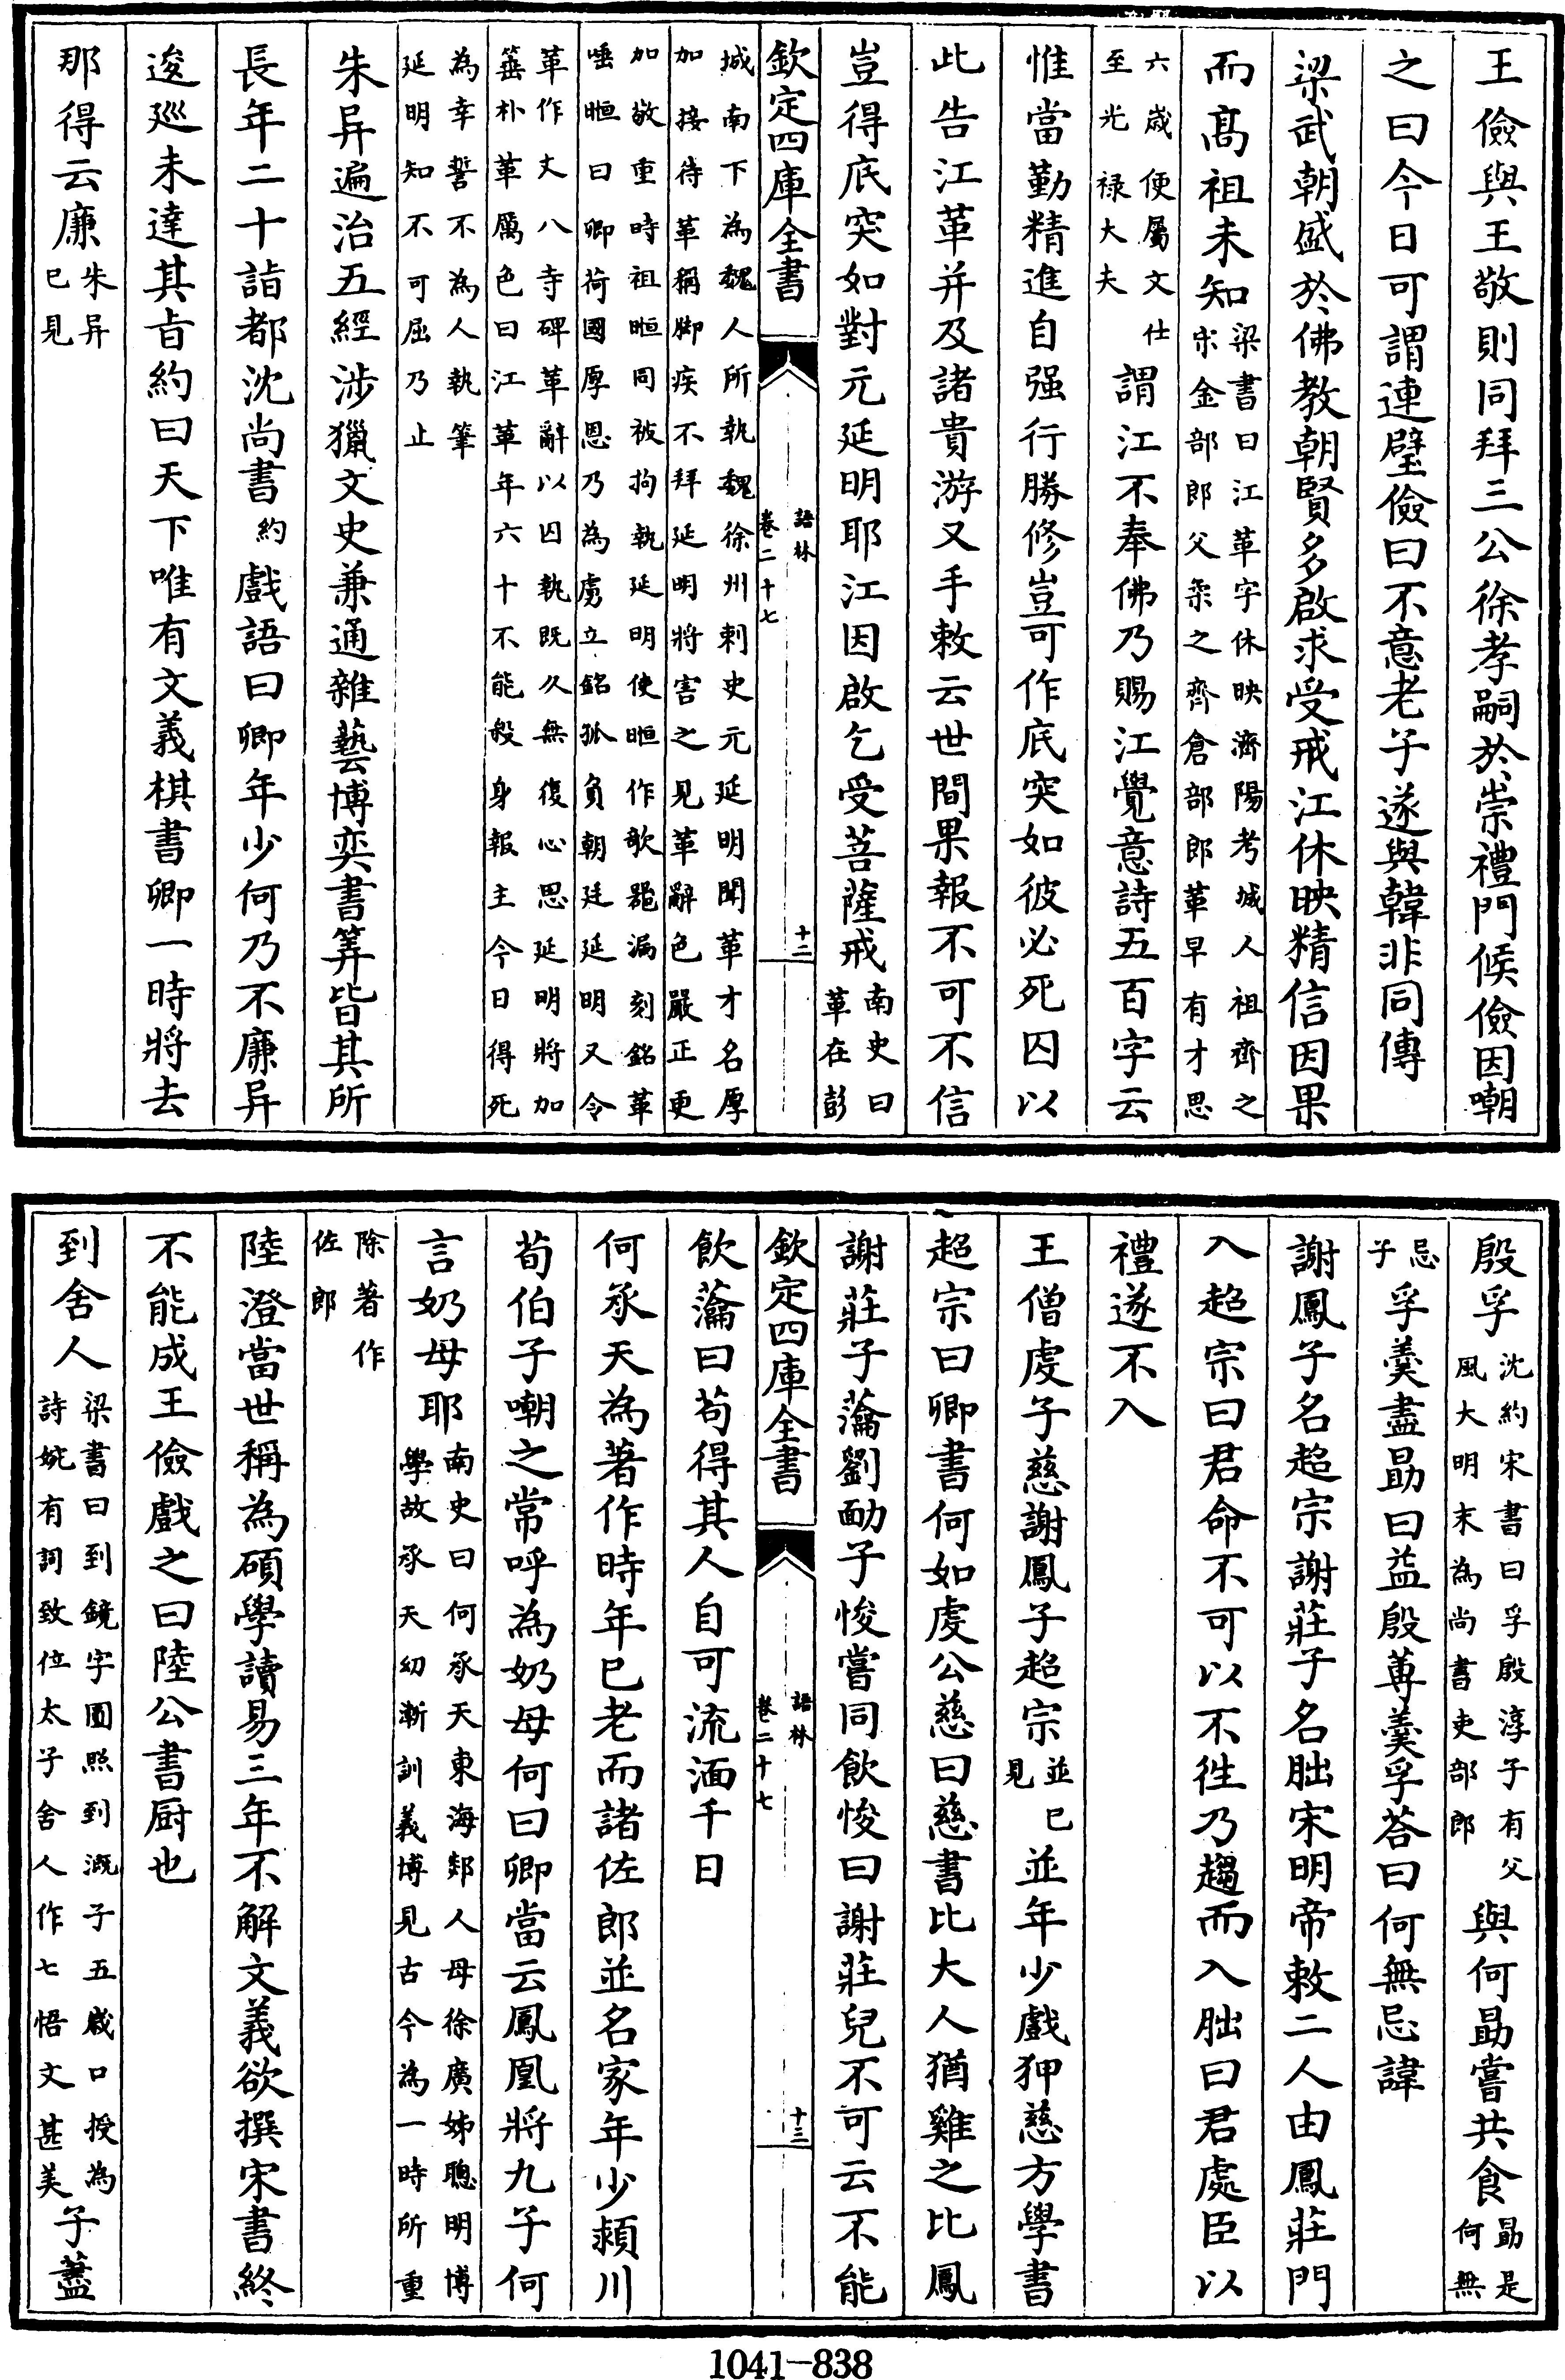 王儉與王敬則同拜三公徐孝嗣於崇禮門候儉因嘲
之曰今日可謂連璧儉曰不意老子遂與韓非同傳
梁武朝盛於佛教朝賢多啟求受戒江休映精信因果
而髙祖未知梁書曰江革字休映濟陽考城人祖齊之宋金部郎父柔之齊倉部郎革早有才思
六歲便屬文仕至光禄大夫謂江不奉佛乃賜江覺意詩五百字云
惟當勤精進自强行勝修豈可作底突如彼必死囚以
此告江革并及諸貴游又手敕云世間果報不可不信
豈得底突如對元延明耶江因啟乞受菩薩戒南史曰革在彭
欽定四庫全書
語林
卷二十七
十二
城南下為魏人所執魏徐州刺史元延明聞革才名厚加接待革稱脚疾不拜延明將害之見革辭色嚴正更
加敬重時祖暅同被拘執延明使暅作欹器漏刻銘革唾暅曰卿荷國厚恩乃為虜立銘孤負朝廷延明又令
革作丈八寺碑革辭以囚執既久無復心思延明將加箠朴革厲色曰江革年六十不能殺身報主今日得死
為幸誓不為人執筆延明知不可屈乃止
朱异遍治五經涉獵文史兼通雜藝博奕書筭皆其所
長年二十詣都沈尚書約戲語曰卿年少何乃不廉异
逡廵未達其㫖約曰天下唯有文義棋書卿一時將去
那得云廉朱异已見
殷孚沈約宋書曰孚殷淳子有父風大明末為尚書吏部郎與何勗嘗共食勗是何無
忌子孚羹盡勗曰益殷蓴羹孚荅曰何無忌諱
謝鳳子名超宗謝莊子名朏宋明帝敕二人由鳳莊門
入超宗曰君命不可以不徃乃趨而入朏曰君處臣以
禮遂不入
王僧虔子慈謝鳳子超宗並已見並年少戲狎慈方學書
超宗曰卿書何如虔公慈曰慈書比大人猶雞之比鳳
謝莊子瀹劉勔子悛嘗同飲悛曰謝莊兒不可云不能
欽定四庫全書
語林
卷二十七
十三
飲瀹曰苟得其人自可流湎千日
何承天為著作時年已老而諸佐郎並名家年少潁川
荀伯子嘲之常呼為奶母何曰卿當云鳳凰將九子何
言奶母耶南史曰何承天東海郯人母徐廣姊聰明博學故承天幼漸訓義博見古今為一時所重
除著作佐郎
陸澄當世稱為碩學讀易三年不解文義欲撰宋書終
不能成王儉戲之曰陸公書厨也
到舍人梁書曰到鏡字圓照到溉子五歲口授為詩婉有詞致位太子舍人作七悟文甚美子藎
1041-838